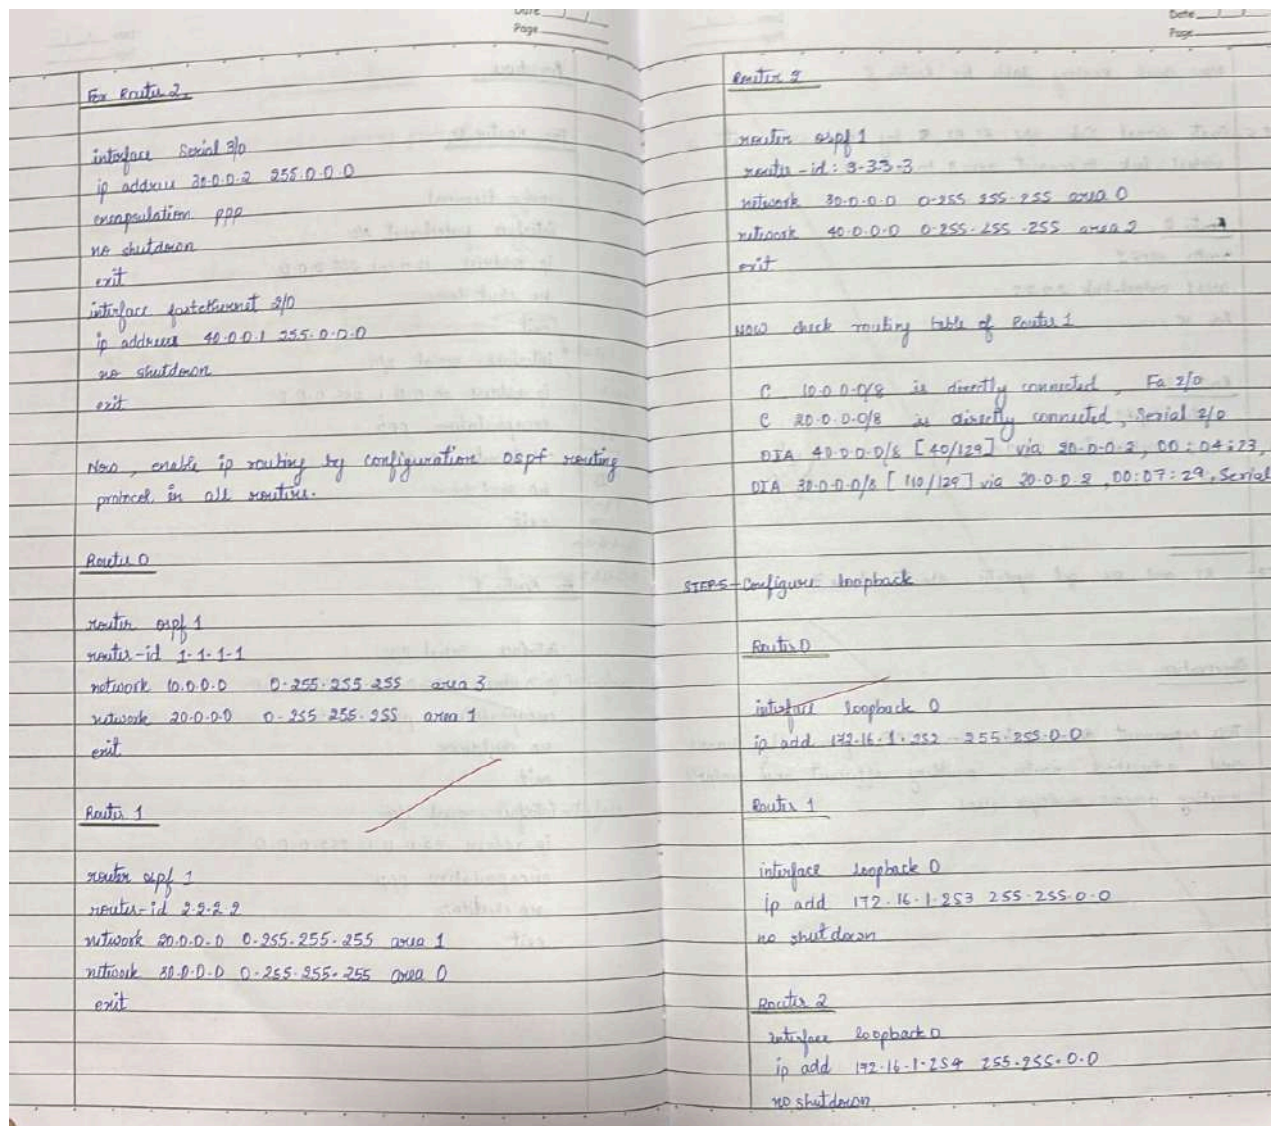 Date
Page
For Router 2.
interface Serial 3/0
ip address 30.0.0.2 255.0.0.0
encapsulation ppp
no shutdown
exit
interface fastethernet 2/0
ip address 40.0.0.1 255.0.0.0
no shutdown
exit
Now, enable ip routing by configuration OSPF routing
protocol in all routers.
Router 0
router ospf 1
router-id 1.1.1.1
network 10.0.0.0 0.255.255.255 area 3
network 20.0.0.0 0.255.255.255 area 1
exit
Router 1
router ospf 1
router-id 2.2.2.2
network 20.0.0.0 0.255.255.255 area 1
network 30.0.0.0 0.255.255.255 area 0
exit
Date
Page
Router 2
router ospf 1
router-id: 3.3.3.3
network 30.0.0.0 0.255.255.255 area 0
network 40.0.0.0 0.255.255.255 area 2
exit
Now check routing table of Router 1
C 10.0.0.0/8 is directly connected, Fa 2/0
C 20.0.0.0/8 is directly connected, Serial 2/0
OIA 40.0.0.0/8 [40/129] via 20.0.0.2, 00:04:23,
OIA 30.0.0.0/8 [110/129] via 20.0.0.2, 00:07:29, Serial
STEP5- Configure loopback
Router 0
interface loopback 0
ip add 172.16.1.252 255.255.0.0
Router 1
interface loopback 0
ip add 172.16.1.253 255.255.0.0
no shutdown
Router 2
interface loopback 0
ip add 172.16.1.254 255.255.0.0
no shutdown